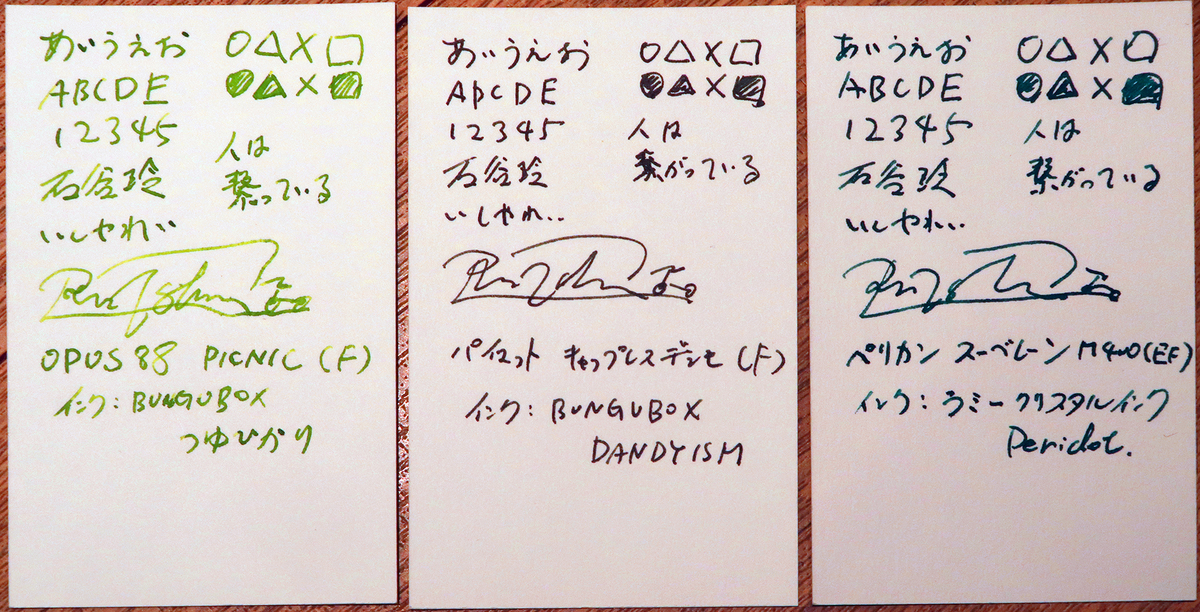 あいうえお ○△×□
ABCDE ●▲×■
12345
人は
石谷玲
繋っている
いしやれい
OPUS 88 PICNIC (F)
インク: BUNGUBOX
つゆひかり
あいうえお ○△×□
ABCDE ●▲×■
12345 人は
石谷玲 繋がっている
いしやれい
パイロット キャップレスデシモ (F)
インク: BUNGUBOX
DANDYISM
あいうえお ○△×□
ABCDE ●▲×■
12345 人は
石谷玲 繋がっている
いしやれい
ペリカン スーベレーン M400(EF)
インク: ラミー クリスタルインク
Peridot.